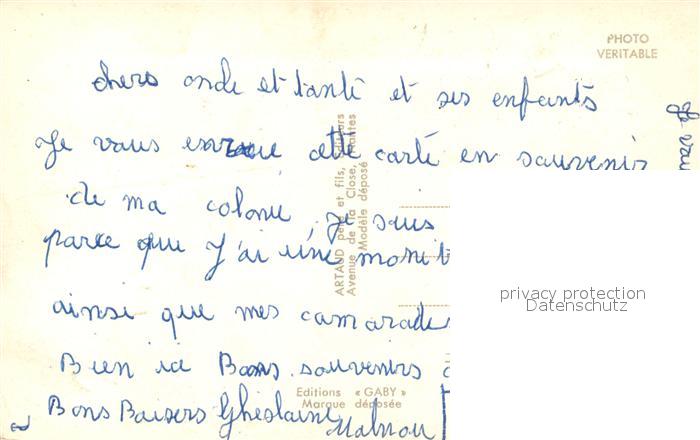 PHOTO
VERITABLE
chers oncle et tante et ses enfants
Je vous envoue cette carte en souvenir
de ma colonie, je suis
parce que J'ai une monit
ainsi que mes camarades
Bien ici Bons souvenirs
Bons Baisers Ghislaine
ARTAUD père et fils,
Avenue de la Close, Nantes
Modèle déposé
Editions « GABY »
Marque déposée
privacy protection
Datenschutz